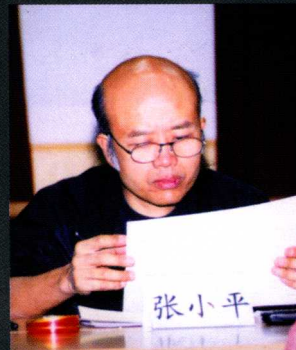 张小平